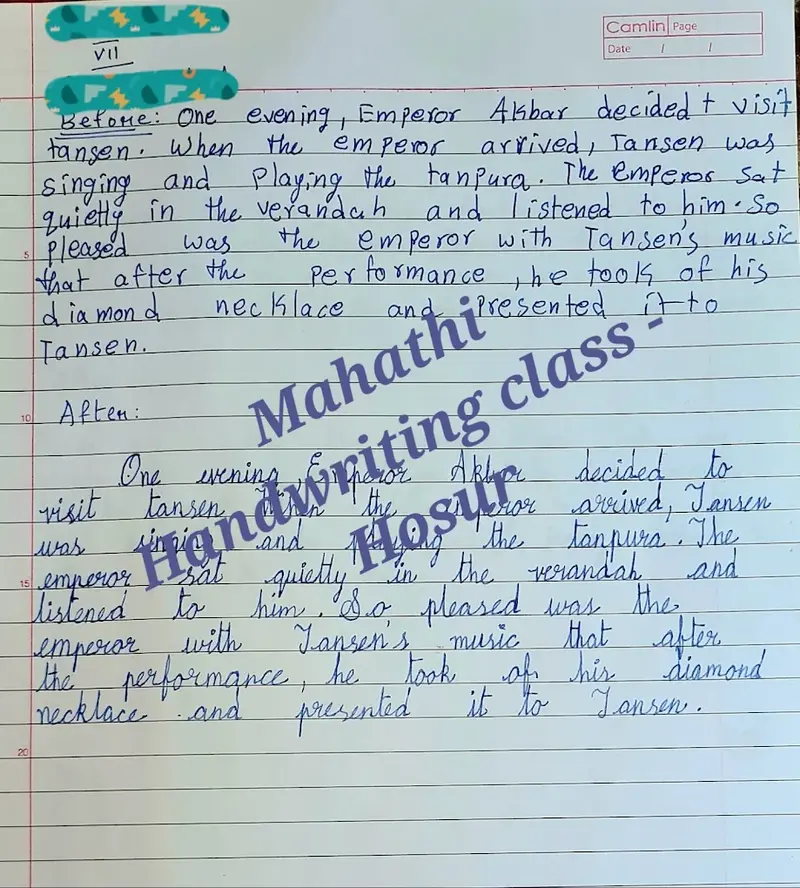 VII
Camlin Page
Date / /
Before: One evening, Emperor Akbar decided t visit
tansen. When the emperor arrived, Tansen was
singing and Playing the tanpura. The emperor sat
quietly in the verandah and listened to him. So
5
pleased was the emperor with Tansen's music
that after the performance, he took of his
diamond necklace and presented it to
Tansen.
10
After:
One evening, Emperor Akbar decided to
visit tansen When the emperor arrived, Tansen
was singing and playing the tanpura. The
15
emperor sat quietly in the verandah and
listened to him. So, pleased was the
emperor with Tansen's music that after
the performance, he took of his diamond
necklace and presented it to Tansen.
20
Mahathi
Handwriting class -
Hosur